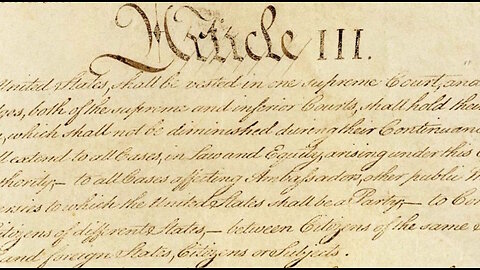 Article III.
United States, shall be vested in one supreme Court, and
both of the supreme and inferior Courts, shall hold their
which shall not be diminished during their Continuance
extend to all Cases, in Law and Equity, arising under this
to all Cases affecting Ambassadors, other public
to which the United States shall be a Party;— to
Citizens of different States,— between Citizens of the same
and foreign States, Citizens or Subjects.